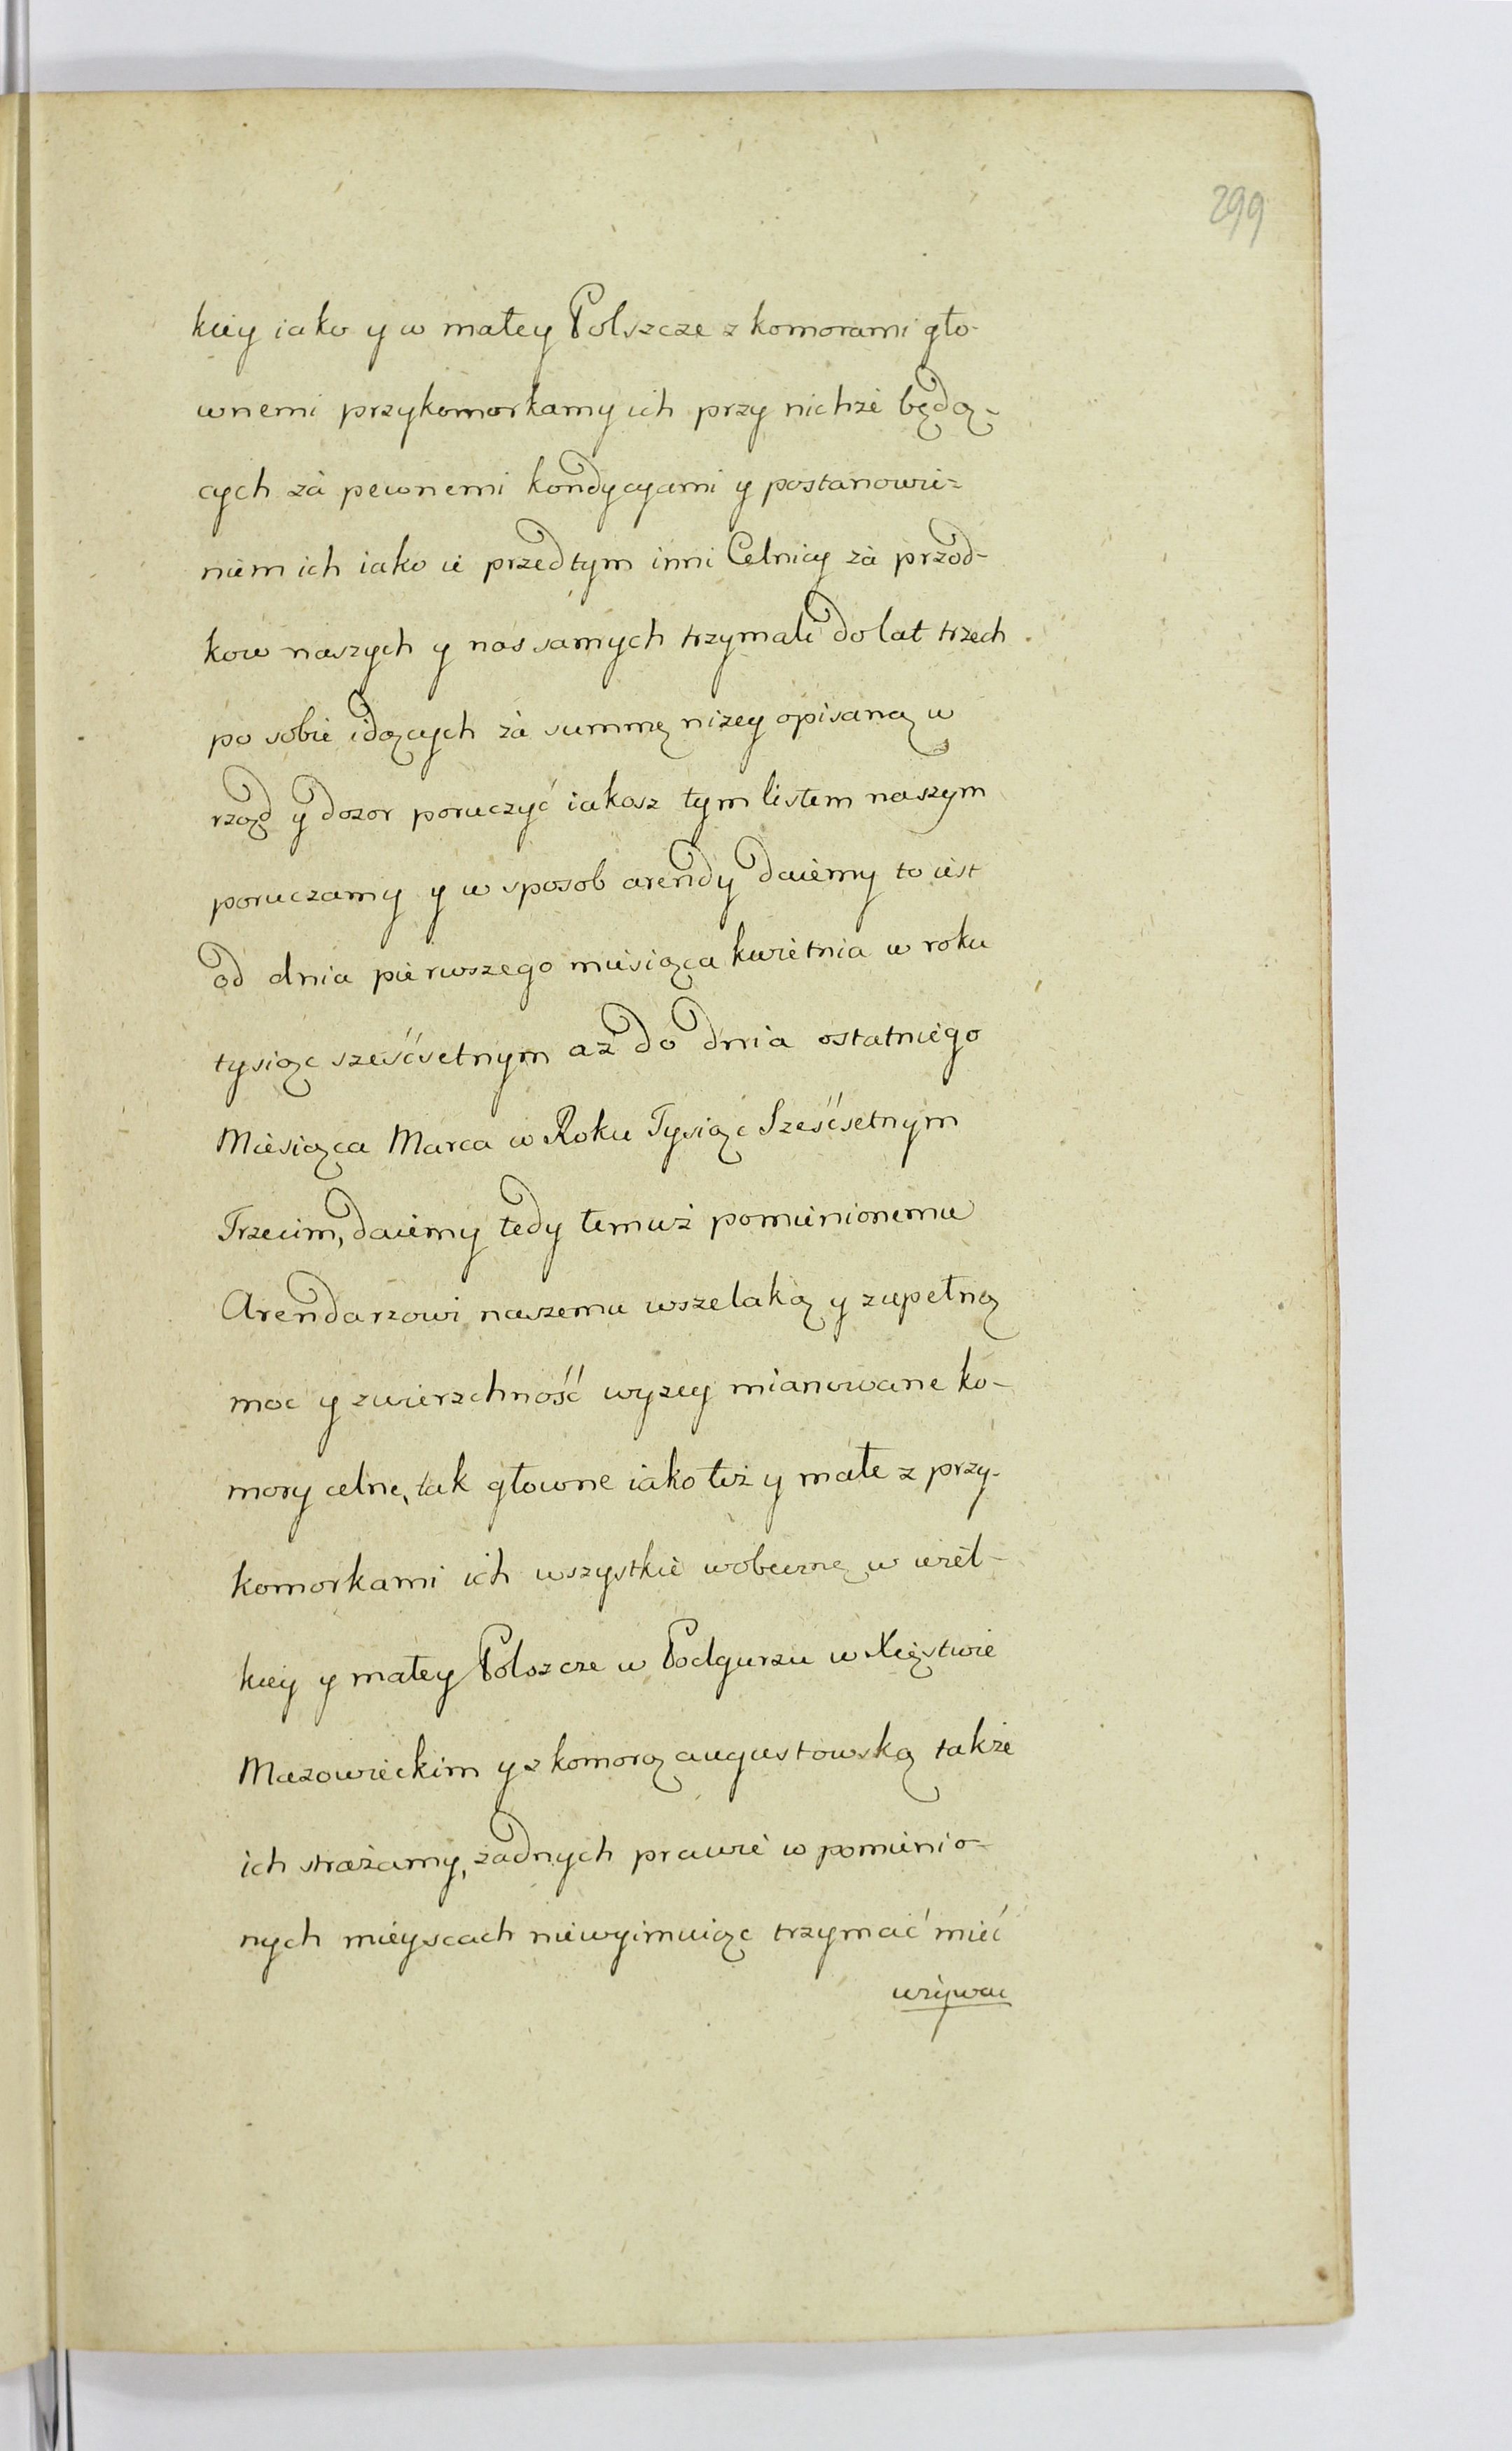 299
kiey iako y w małey Polszcze z komorami gło-
wnemi przykomorkamy ich przy nichże będą-
cych za pewnemi kondycyami y postanowie-
niem ich iako ie przedtym inni Celnicy za przod-
kow naszych y nas samych trzymali do lat trzech
po sobie idących za summę nizey opisaną w
rząd y dozor poruczyć iakosz tym listem naszym
poruczamy y w sposob arendy daiemy to iest
od dnia pierwszego miesiąca kwietnia w roku
tysiąc sześćsetnym aż do dnia ostatniego
Miesiąca Marca w Roku Tysiąc Sześćsetnym
Trzecim, daiemy tedy temuż pomienionemu
Arendarzowi naszemu wszelaką y zupełną
moc y zwierzchność wyzey mianowane ko-
mory celne, tak głowne iako też y małe z przy-
komorkami ich wszystkie wobecznę w wiel-
kiey y małey Polszcze w Podgurzu w Xięstwie
Mazowieckim y z komorą augustowską także
ich strażamy, żadnych prawie w pomienio-
nych mieyscach niewyimuiąc trzymać mieć
używać